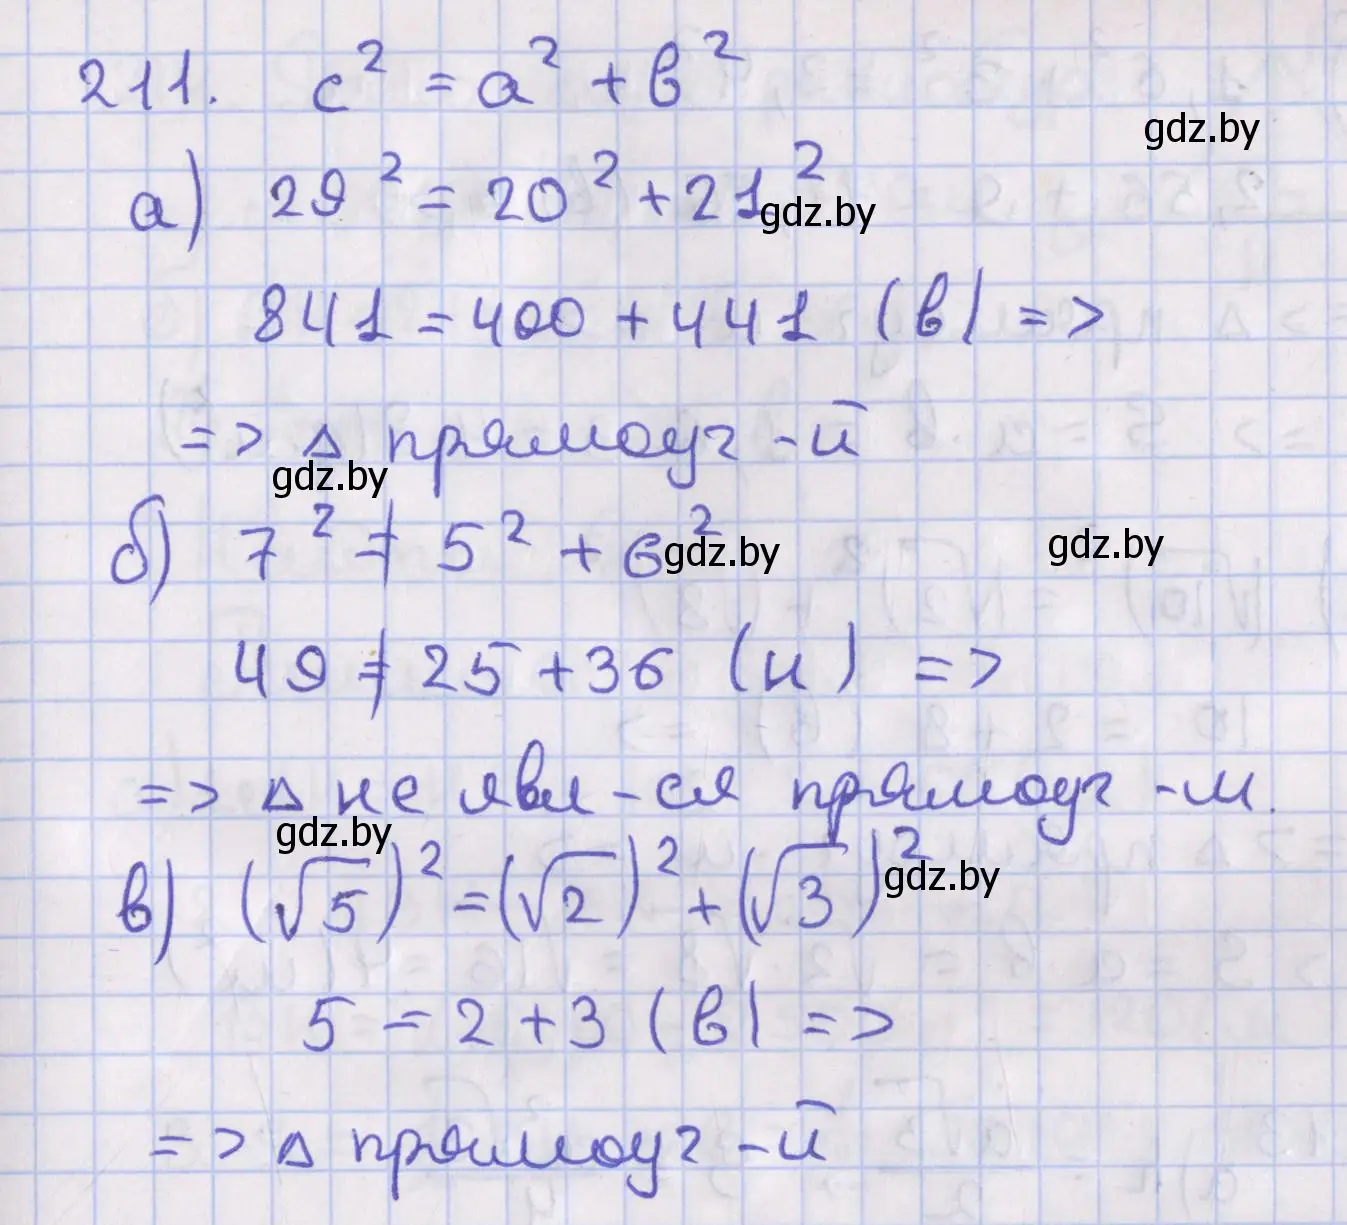 211. c² = a² + b²
gdz.by
а) 29² = 20² + 21²
gdz.by
841 = 400 + 441 (в) =>
=> Δ прямоуг-й
gdz.by
б) 7² ≠ 5² + 6²
gdz.by
gdz.by
49 ≠ 25 + 36 (н) =>
=> Δ не явл-ся прямоуг-м.
gdz.by
в) (√5)² = (√2)² + (√3)²
gdz.by
5 = 2 + 3 (в) =>
=> Δ прямоуг-й